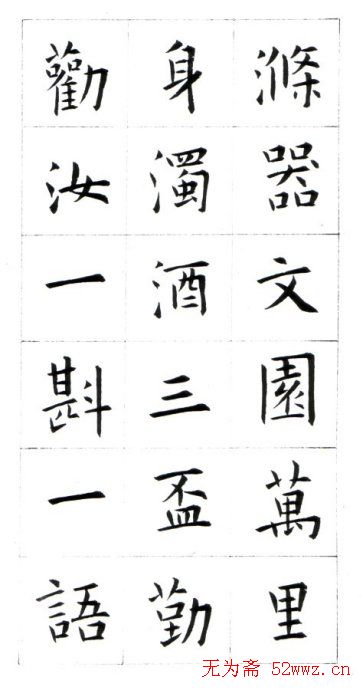 滌器文園萬里
身濁酒三盃勤
勸汝一斟一語
无为斋 52wwz.cn